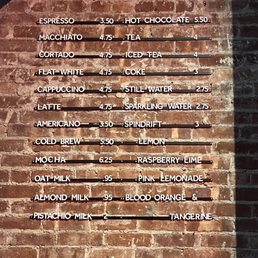 ESPRESSO 3.50
MACCHIATO 4.75
CORTADO 4.75
FLAT WHITE 4.75
CAPPUCCINO 4.75
LATTE 4.75
AMERICANO 3.50
COLD BREW 5.50
MOCHA 6.25
OAT MILK .95
ALMOND MILK .95
PISTACHIO MILK 2
HOT CHOCOLATE 5.50
TEA 4
ICED TEA 4
COKE 3
STILL WATER 2.75
SPARKLING WATER 2.75
SPINDRIFT 3
LEMON
RASPBERRY LIME
PINK LEMONADE
BLOOD ORANGE &
TANGERINE